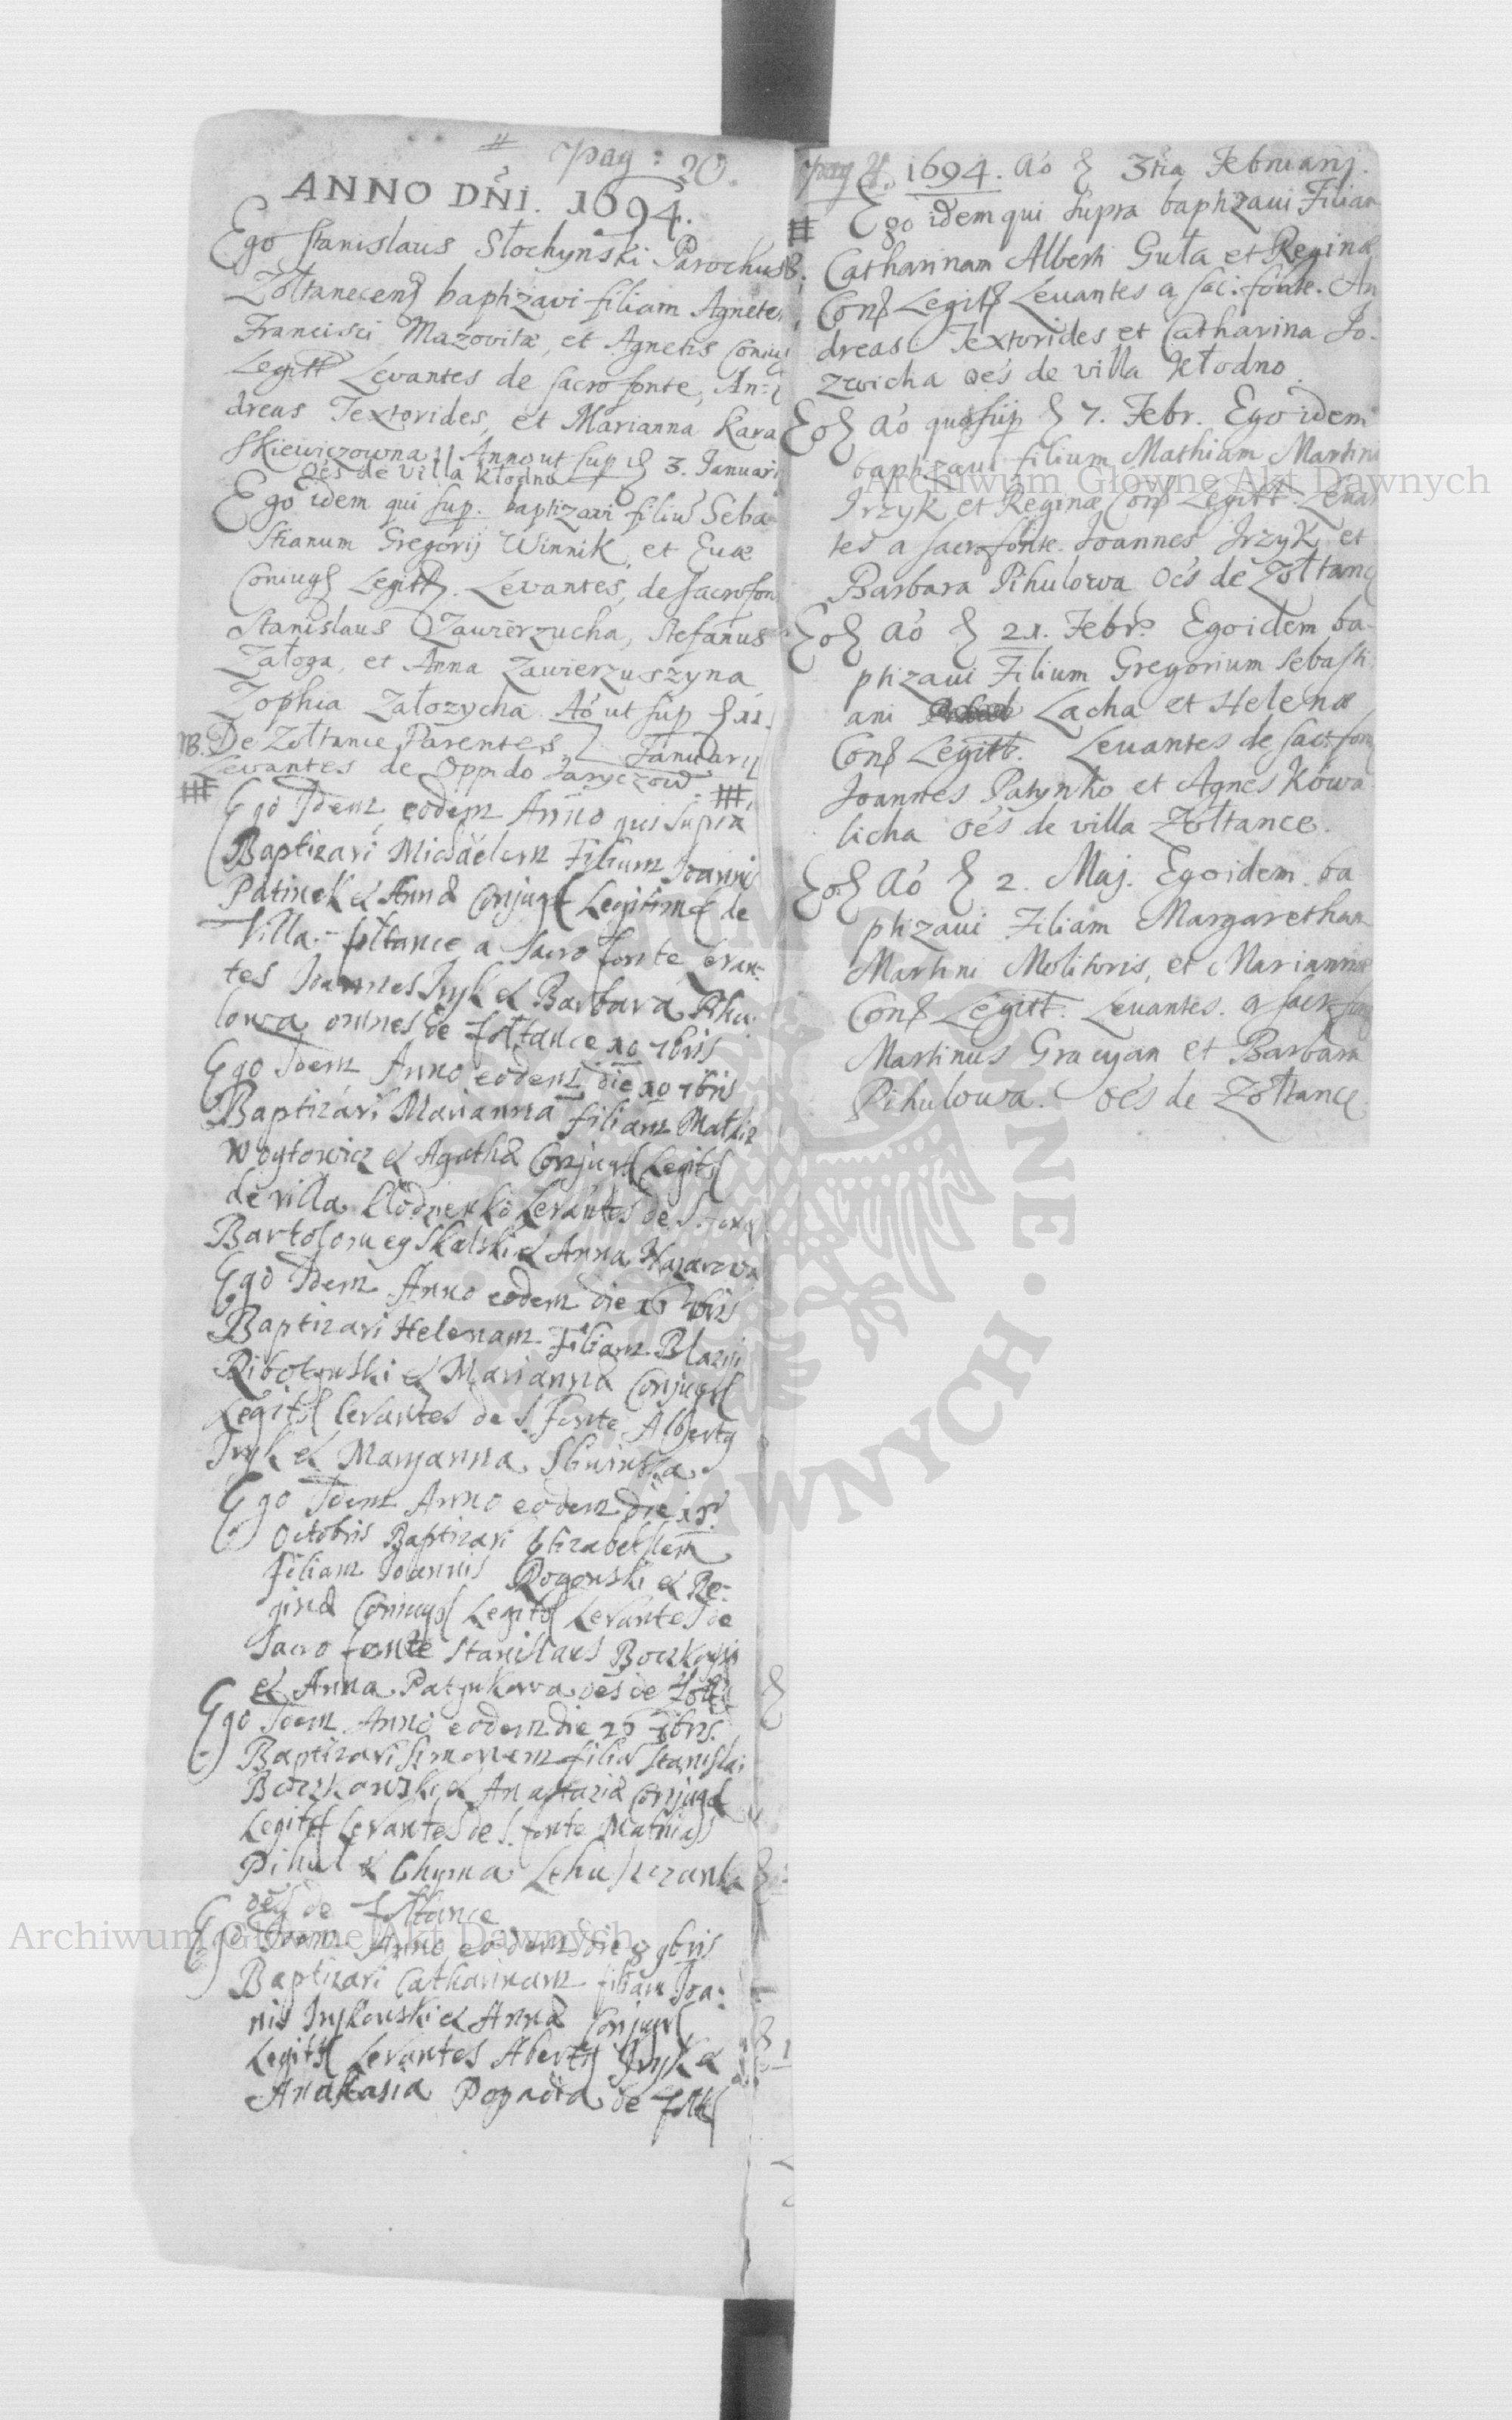 pag : 20.
ANNO DNI. 1694.
Ego Stanislaus Słochyński Parochus
Zołtanecens baptizavi filiam Agnetem
Francisci Mazovitæ, et Agnetis Coniug
Legitt Levantes de sacro fonte, An-
dreas Textorides, et Marianna Kara
skiewiczowna // Anno ut sup d 3. Januari
oes de villa Kłodno
Ego idem qui sup. baptizavi filiu Seba
stianum Gregorij Winnik, et Euæ
Coniug Legitt. Levantes, de sacro fon
Stanislaus Zawierzucha, Stefanus
Załoga, et Anna Zawierzuszyna
Zophia Załozycha. Ao ut sup d 11.
NB. De Zołtance Parentes, Januarij
Levantes de Oppido Jaryczow
Ego Idem eodem Anno qui supra
Baptizavi Michaelem Filium Joannis
Patinek et Annæ Conjug Legitim de
Villa Zołtance a sacro fonte Levan-
tes Joannes Iryk et Barbara Pihu
lowa omnes de Zołtance 10 7bris
Ego Idem Anno eodem die 10 7bris
Baptizavi Marianna filiam Mathiæ
Woytowicz et Agathæ Conjug Legit
de villa Kłodzienko Levantes de S. fonte
Bartolomeg Skalski et Anna Nazarowa
Ego Idem Anno eodem die 16 7bris
Baptizavi Helenam Filiam Blazij
Ribotynski et Mariannæ Conjug
Legit Levantes de S. fonte Albertg
Iryk et Maryanna
Ego Idem Anno eodem die 15
Octobris Baptizavi Elizabethem
Filiam Joannis Rogowski et Re-
ginæ Coniug Legit Levantes de
Sacro fonte Stanislaus Boczkowski
et Anna Patynkowa oes de Zołt
Ego Idem Anno eodem die 26 8bris.
Baptizavi Simonem filiu Stanislai
Boczkowski et Anastaziæ Conjug
Legit Levantes de S. fonte Mathias
Pihul et Chyma
oes de Zołtance
Ego Idem Anno eodem die 8 9bris
Baptizavi Catharinam filiam Joa-
nis Irykowski et Annæ Conjug
Legit Levantes Albertg Iryk et
Anastasia Popadia de Zołt
pag 21. 1694. Ao d 3tia Februarij.
Ego idem qui supra baptizaui Filiam
Catharinam Alberti Guła et Reginæ
Con Legit Leuantes a sac: fonte. An
dreas Textorides et Catharina Jo-
zwicha oes de villa Kłodno.
Eod Ao quo sup d 7. Febr. Ego idem
baptizaui filium Mathiam Martini
Jrzyk et Reginæ Con Legitt. Leuan
tes a sacro fonte. Joannes Jrzyk et
Barbara Pihulowa oes de Zołtanc
Eod Ao d 21. Febr. Ego idem ba-
ptizaui Filium Gregorium Sebasti
ani Lacha et Helenæ
Con Legitt. Leuantes de sac. fon
Joannes Patynko et Agnes Kowa
licha oes de villa Zołtance.
Eod Ao d 2. Maj. Ego idem ba
ptizaui Filiam Margaretham
Martini Molitoris, et Mariannæ
Con Legitt. Leuantes. a sacr. fon
Martinus Gracyan et Barbara
Pihulowa. oes de Zołtance
Archiwum Główne Akt Dawnych
Archiwum Główne Akt Dawnych